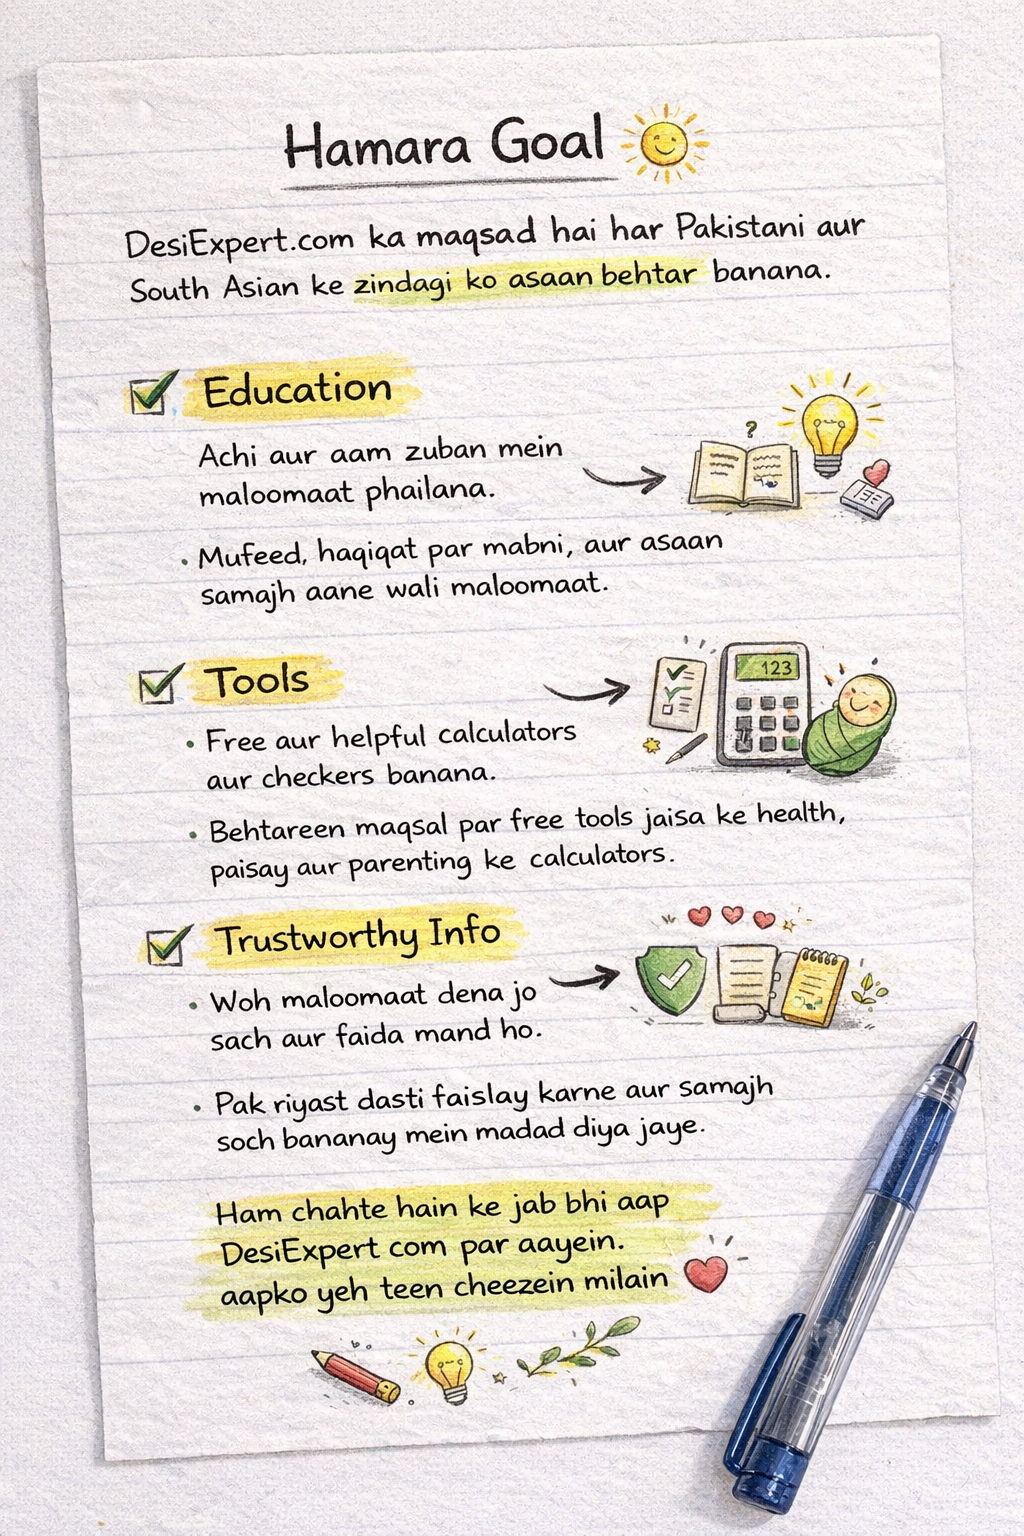 Hamara Goal
DesiExpert.com ka maqsad hai har Pakistani aur
South Asian ke zindagi ko asaan behtar banana.
Education
Achi aur aam zuban mein
maloomaat phailana.
?
• Mufeed, haqiqat par mabni, aur asaan
samajh aane wali maloomaat.
Tools
123
• Free aur helpful calculators
aur checkers banana.
• Behtareen maqsal par free tools jaisa ke health,
paisay aur parenting ke calculators.
Trustworthy Info
• Woh maloomaat dena jo
sach aur faida mand ho.
• Pak riyast dasti faislay karne aur samajh
soch bananay mein madad diya jaye.
Ham chahte hain ke jab bhi aap
DesiExpert com par aayein.
aapko yeh teen cheezein milain